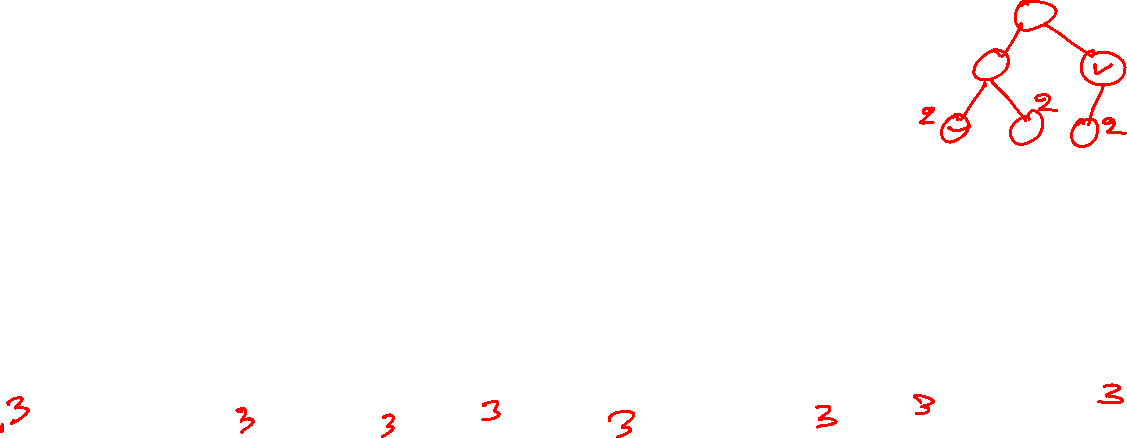 2 2 2
3 3 3 3 3 3 3 3